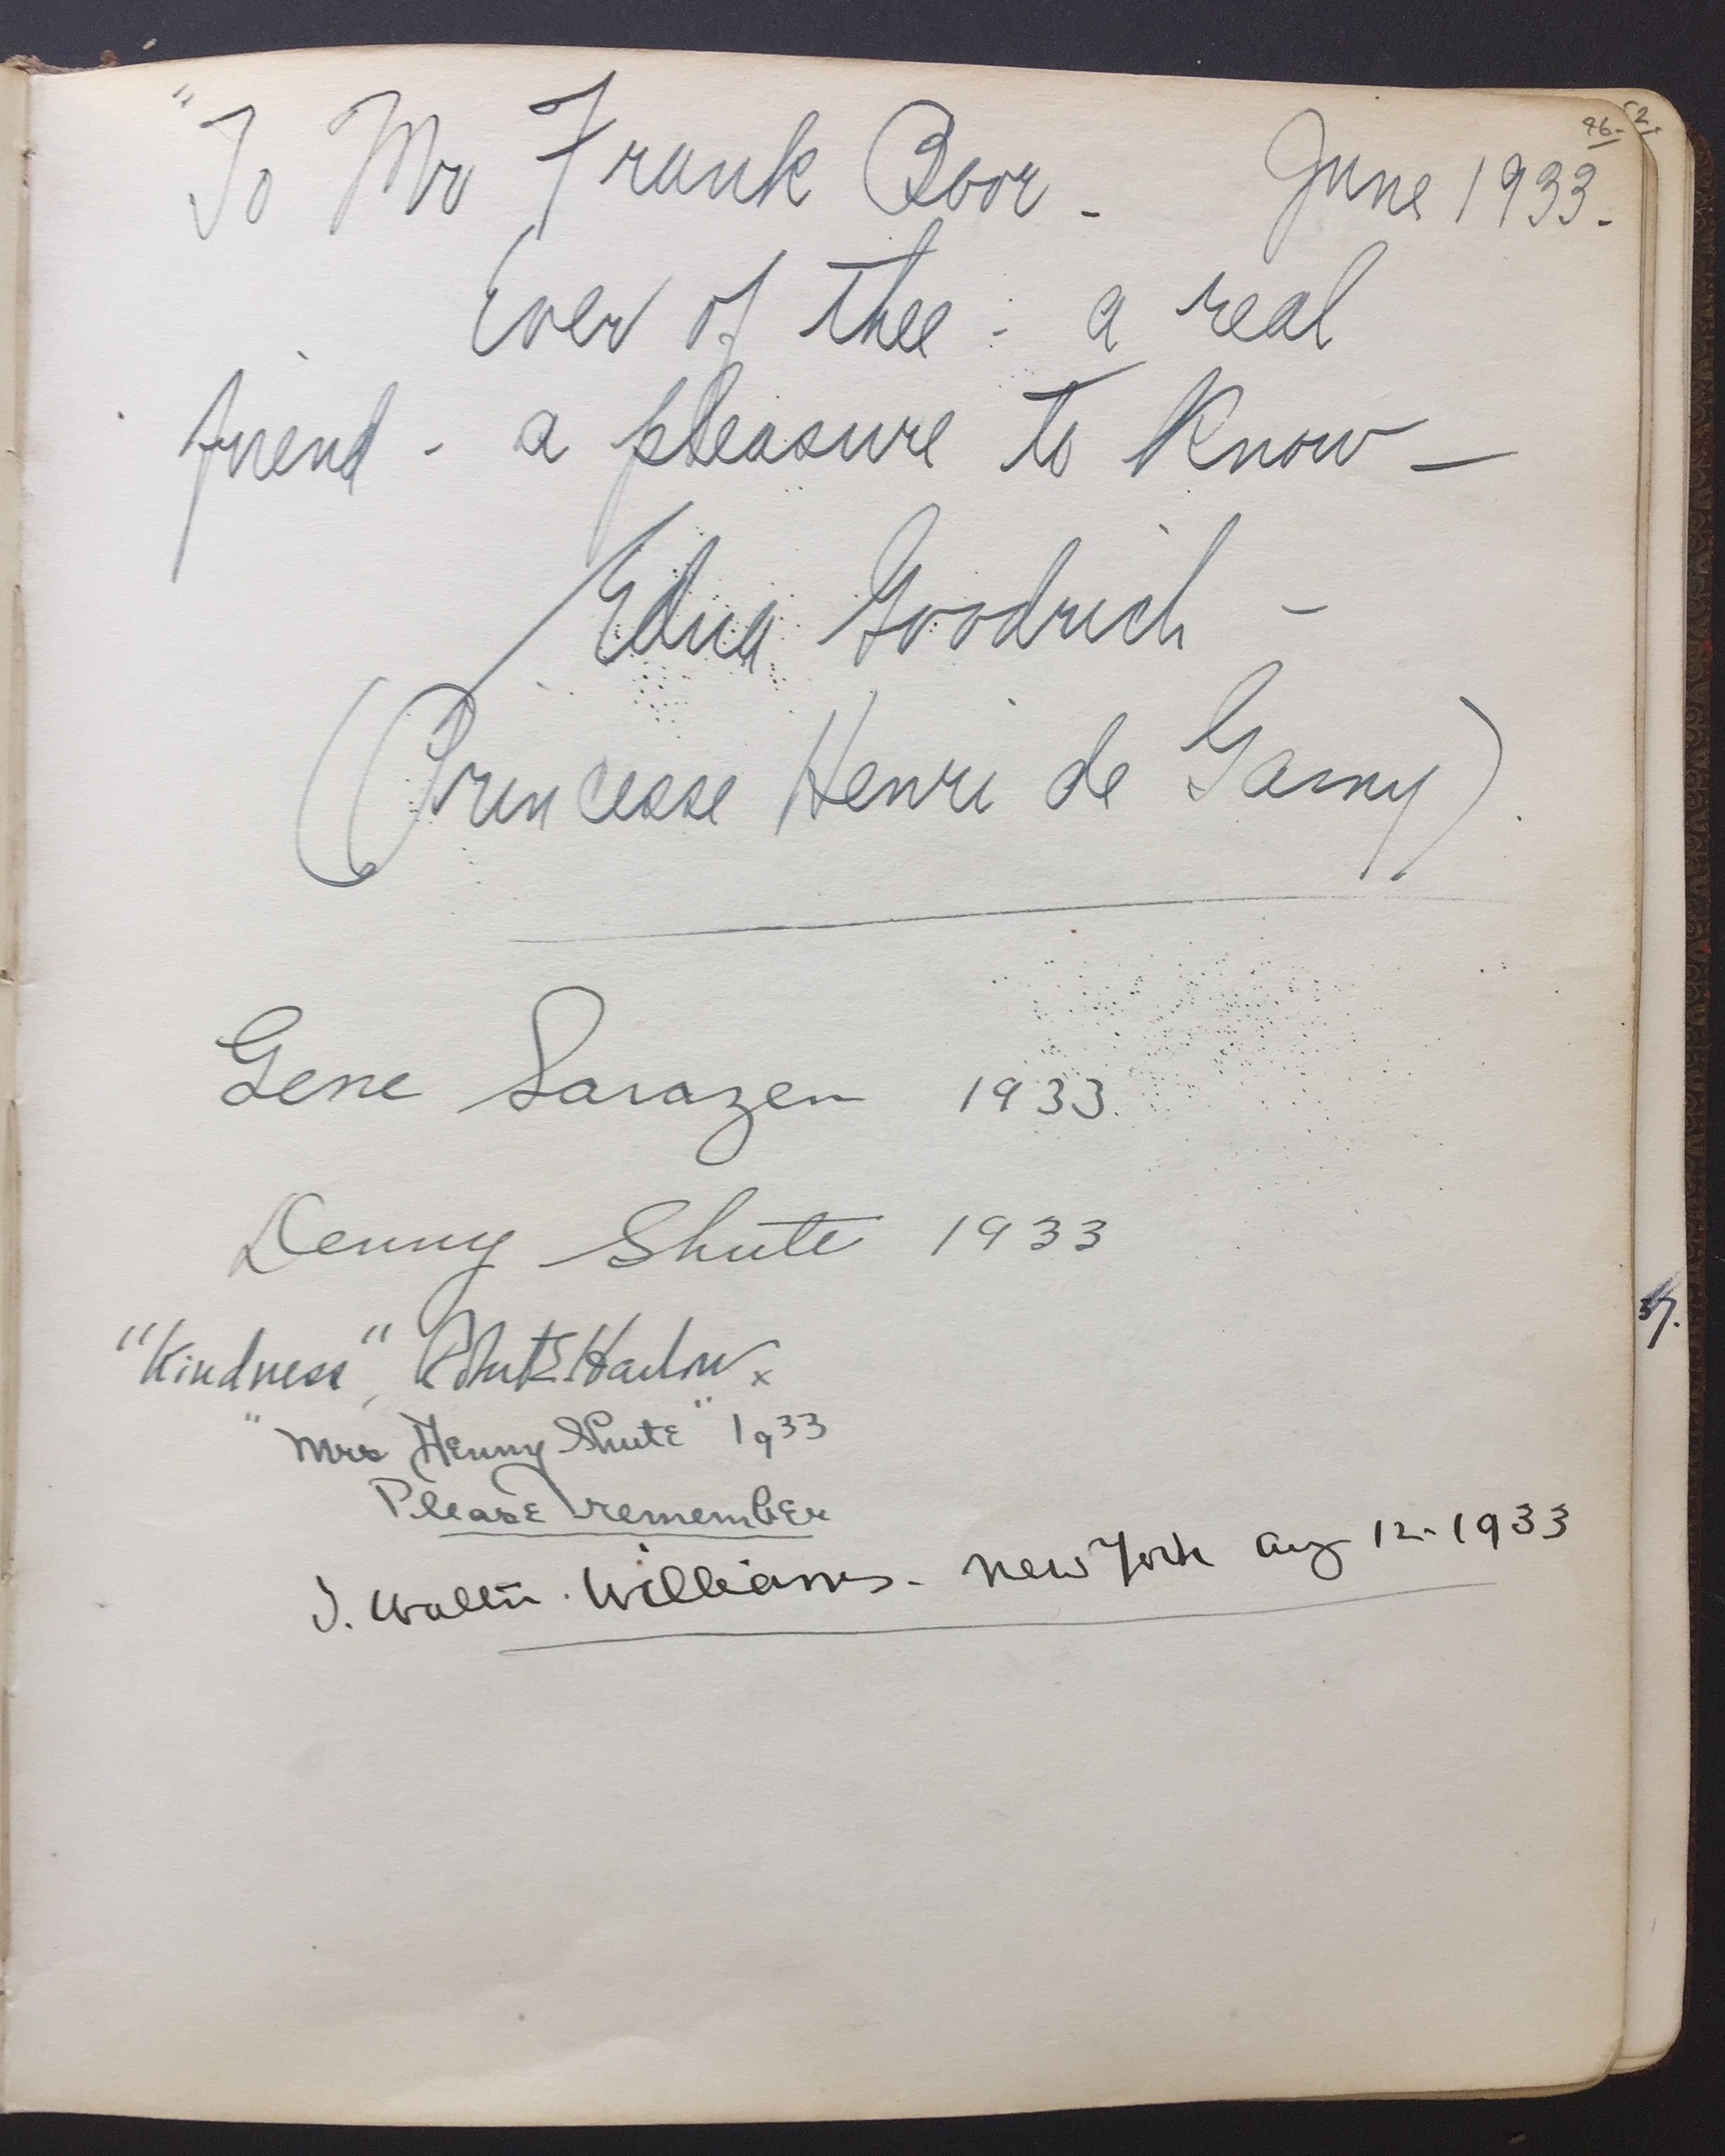 46- 52.
"To Mr Frank Boor - June 1933.
Ever of thee : a real
friend - a pleasure to know -
Edna Goodrich -
(Princesse Henri de Garny)
Gene Sarazen 1933
Denny Shute 1933
"Kindness", Robt E Harlow x
"Mrs Henny Shute" 1933
Please remember
J. Walter Williams - New York Aug 12-1933
57.